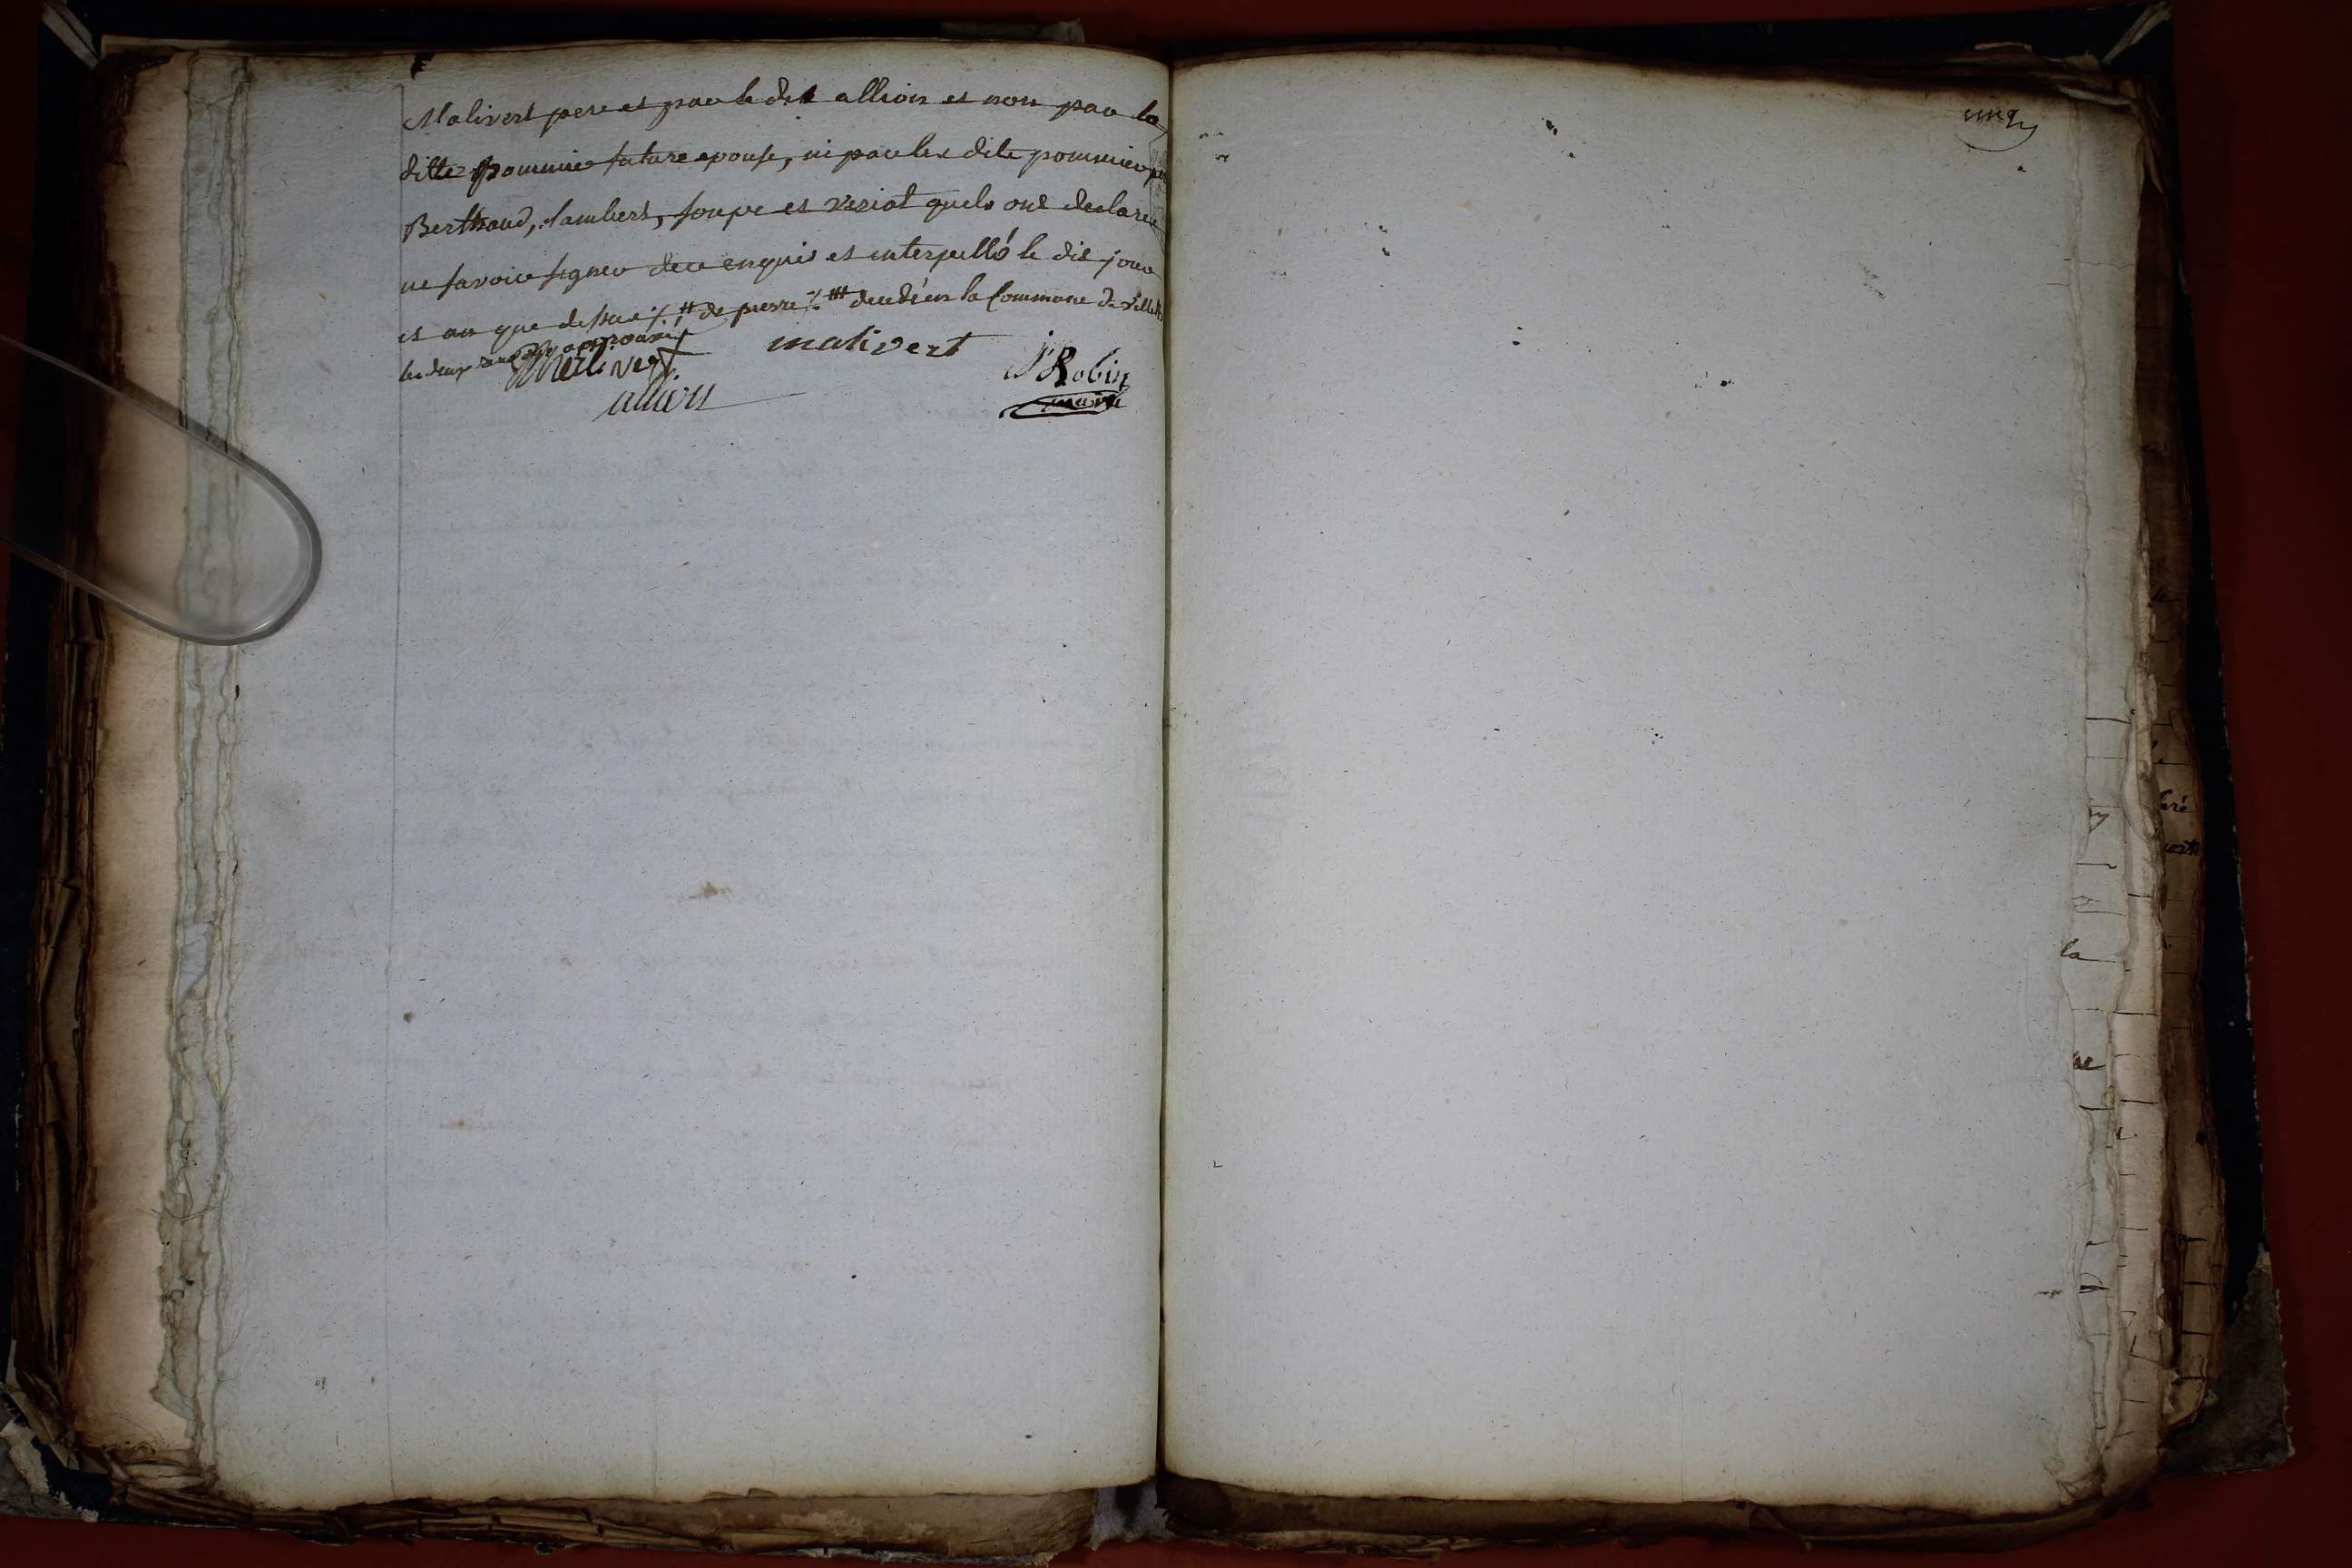 Malivert pere et par le dit allion et non par la
ditte pommier future epouse, ni par les dits pommier
Berthaud, Lambert, soupe et veziat quels ont declaré
ne savoir signer de ce enquis et interpellé le dit jour
et an que dessus ⁒ # de pierre ⁒ ### decedé en la Commune de
les deux approuvé
Malivert malivert J Robin
allion maire
cinq
la